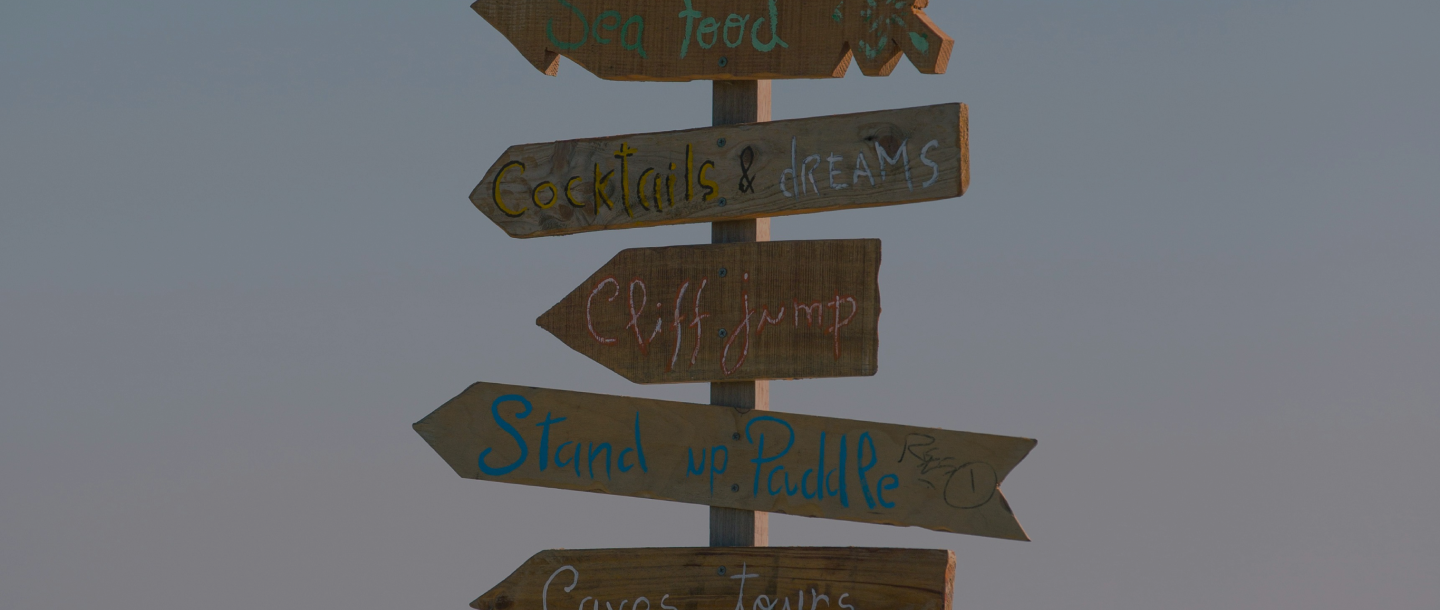 Sea food
Cocktails & dREAMS
Cliff jump
Stand up Paddle
Caves tours